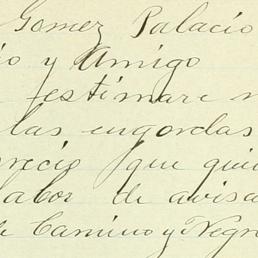 Gomez Palacio
io y Amigo
estimare
las engordas
precio que
labor de avisa
Camino y Negr